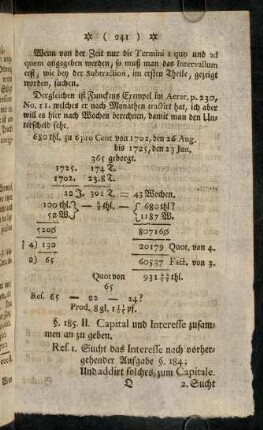 ( 241 )
Wenn von der Zeit nur die Termini a quo und ad
quem angegeben werden, so muß man das Intervallum
erst, wie bey der Subtraction, im ersten Theile, gezeigt
worden, suchen.
Dergleichen ist Funckens Exempel im Aerar. p. 230,
No. 11. welches er nach Monathen tractirt hat, ich aber
will es hier nach Wochen berechnen, damit man den Un-
terscheid sehe.
680 thl. zu 6 pro Cent von 1702, den 26 Aug.
bis 1725, den 23 Jun.
365 geborgt.
1725. 174 T.
1702. 238 T.
22 J. 301 T. = 43 Wochen.
100 thl. — 6/1 thl. — 680 thl?
52 W. 1187 W.
5200 807160
4) 130 20179 Quot. von 4.
2) 65 60537 Fact. von 3.
Quot von 931 thl.
65
Res. 65 — 22 — 24?
Prod. 8 gl. pf.
§. 185. II. Capital und Interesse zusam-
men an zu geben.
Res. 1. Sucht das Interesse nach vorher-
gehender Aufgabe §. 184;
Und addirt solches, zum Capitale.
Q 2. Sucht